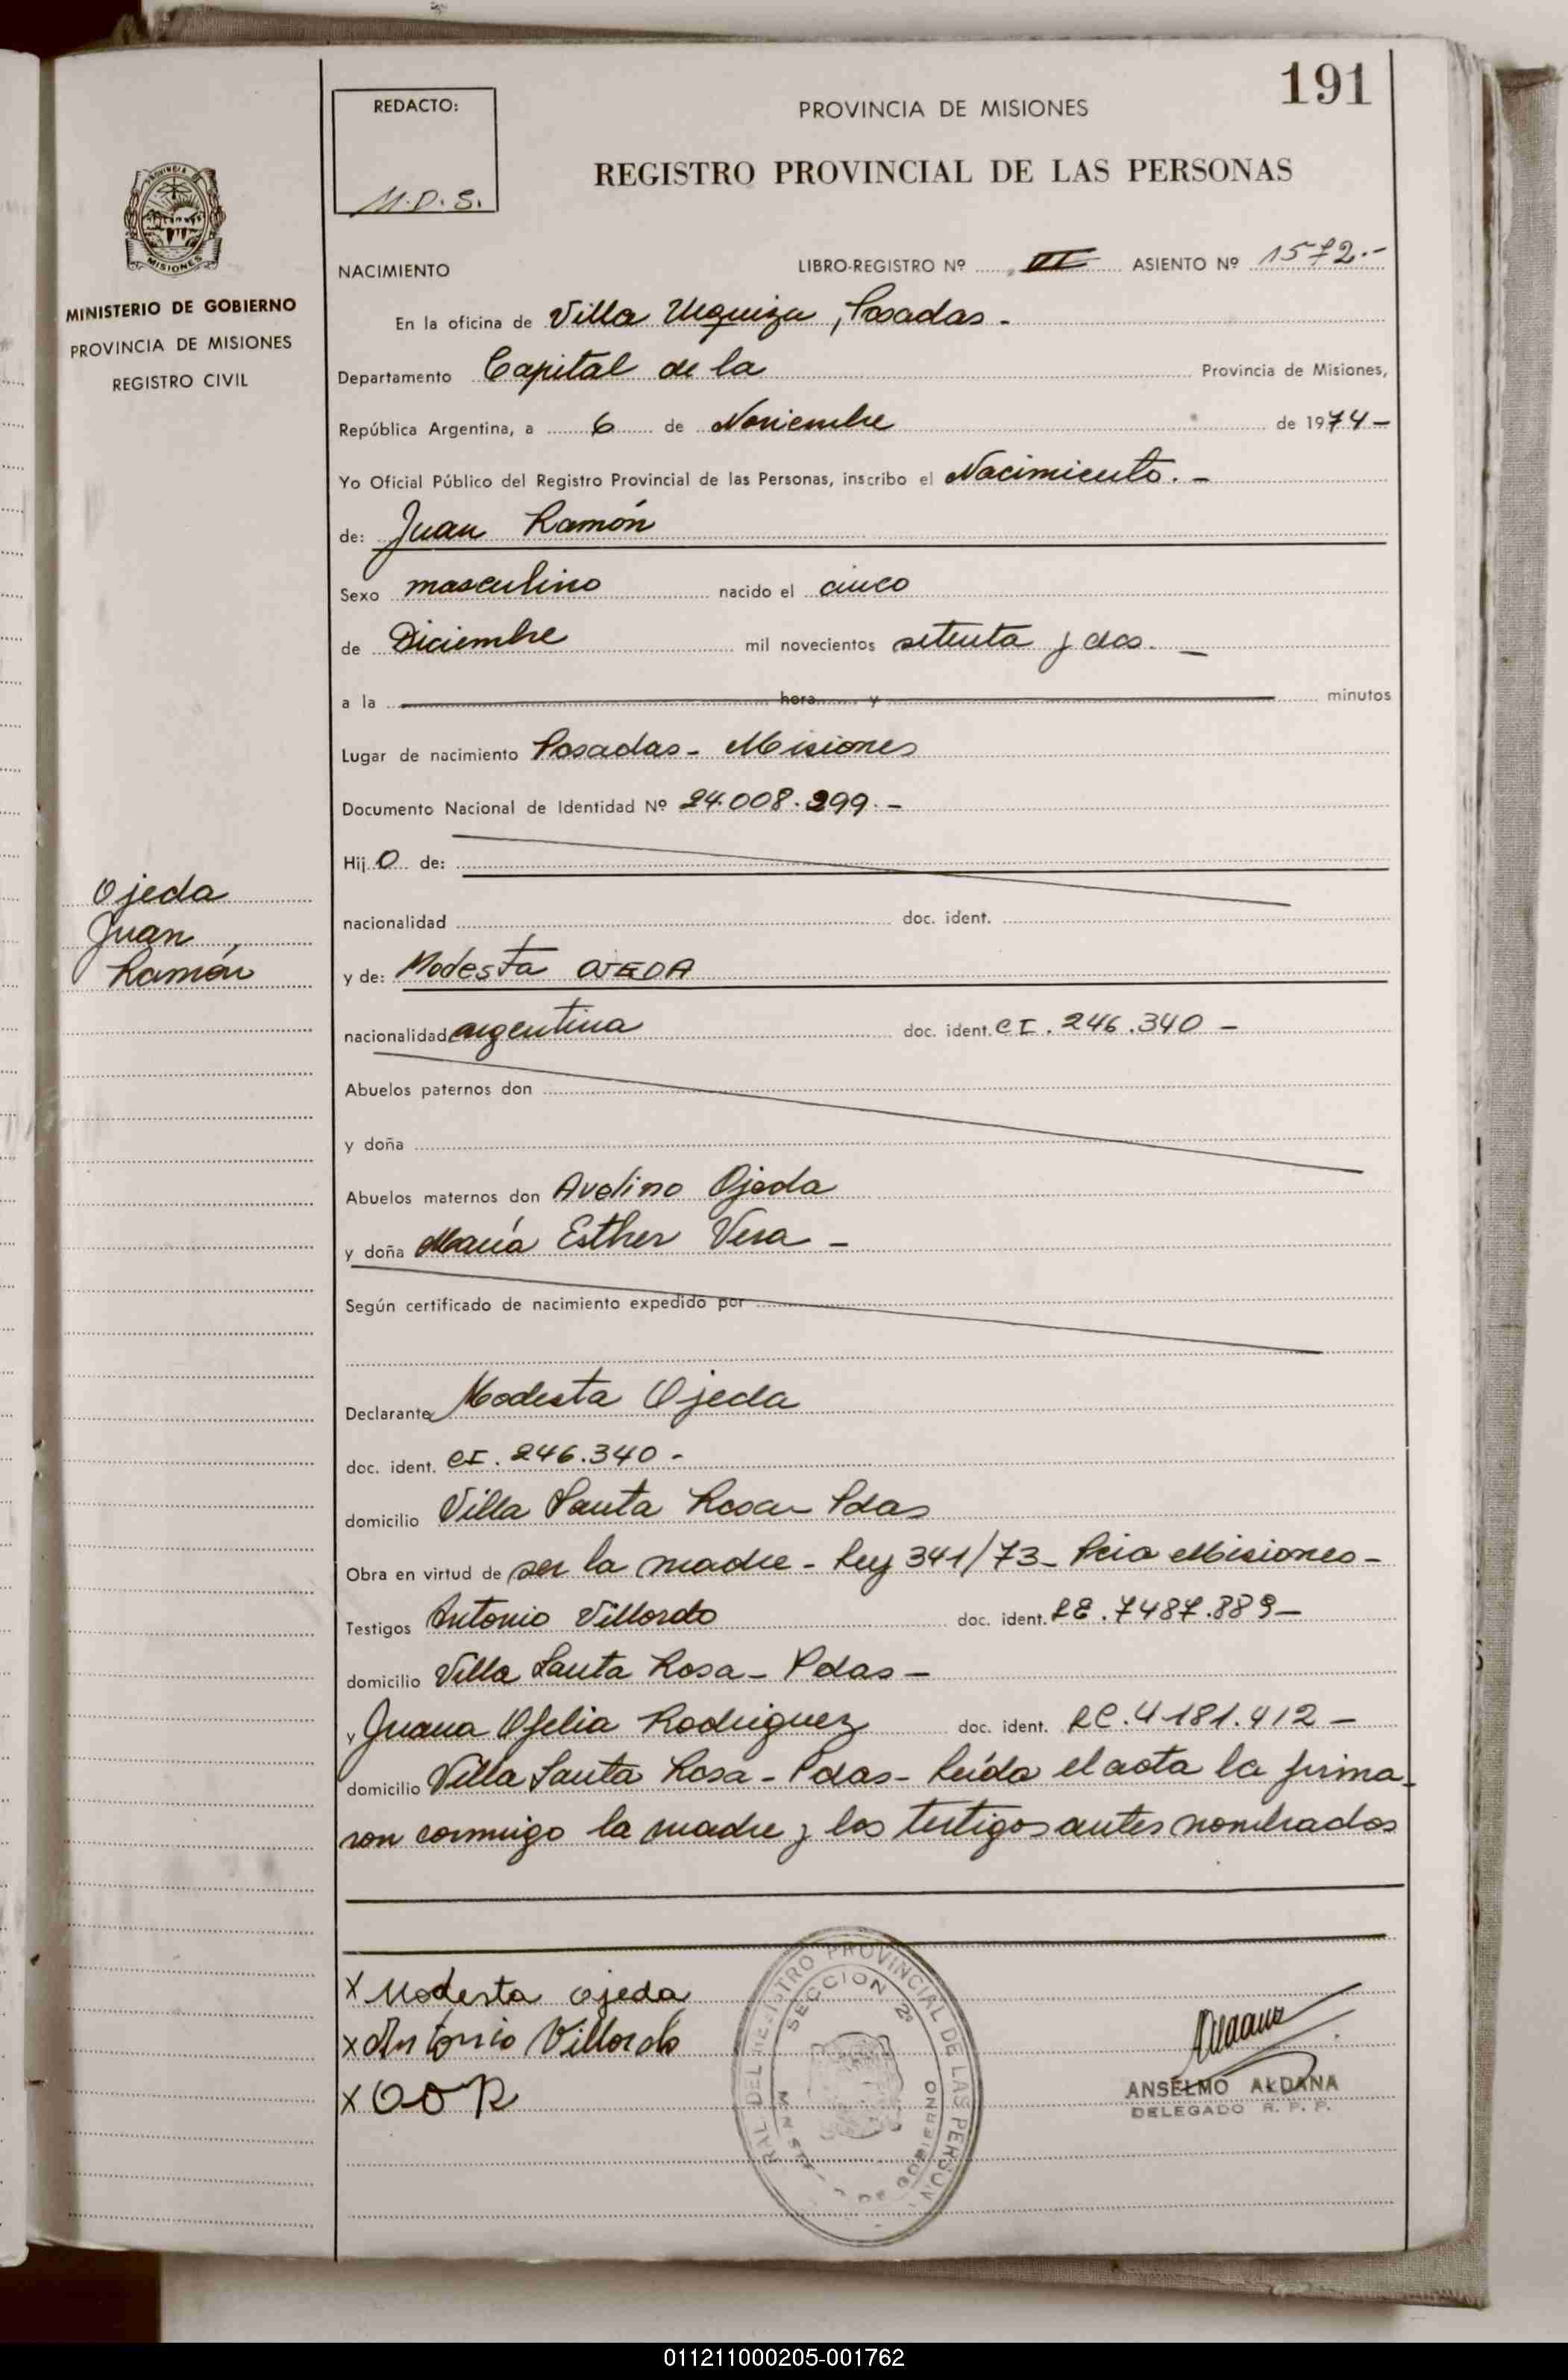 191
REDACTO:
M.D.S.
PROVINCIA DE MISIONES
REGISTRO PROVINCIAL DE LAS PERSONAS
PROVINCIA DE
MISIONES
MINISTERIO DE GOBIERNO
PROVINCIA DE MISIONES
REGISTRO CIVIL
NACIMIENTO LIBRO-REGISTRO Nº III ASIENTO Nº 1572.-
En la oficina de Villa Urquiza, Posadas -
Departamento Capital de la Provincia de Misiones,
República Argentina, a 6 de Noviembre de 1974 -
Yo Oficial Público del Registro Provincial de las Personas, inscribo el Nacimiento. -
de: Juan Ramón
Sexo masculino nacido el cinco
de Diciembre mil novecientos setenta y dos. -
a la hora y minutos
Lugar de nacimiento Posadas - Misiones
Documento Nacional de Identidad Nº 24.008.299. -
Hij o de:
Ojeda
Juan
Ramón
nacionalidad doc. ident.
y de: Modesta OJEDA
nacionalidad argentina doc. ident. CI. 246.340 -
Abuelos paternos don
y doña
Abuelos maternos don Avelino Ojeda
y doña María Esther Vera -
Según certificado de nacimiento expedido por
Declarante Modesta Ojeda
doc. ident. CI. 246.340 -
domicilio Villa Santa Rosa - Pdas
Obra en virtud de ser la madre - Ley 341/73 - Pcia Misiones -
Testigos Antonio Villordo doc. ident. LE. 7487.889 -
domicilio Villa Santa Rosa - Pdas -
y Juana Ofelia Rodriguez doc. ident. LC. 4181.412 -
domicilio Villa Santa Rosa - Pdas - Leída el acta la firma-
ron conmigo la madre y los testigos antes nombrados
X Modesta ojeda
X Antonio Villordo
X OOR
SECCION 2ª
ANSELMO ALDANA
DELEGADO R. P. P.
011211000205-001762